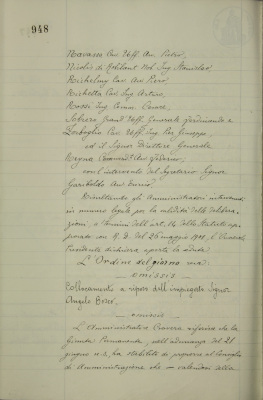 948
Navasso Cav. Uff. Avv. Pietro,
Nicolis di Robilant Nob. Ing. Stanislao
Richelmy Cav. Avv. Piero,
Richetta Cav. Ing. Arturo,
Rossi Ing. Comm. Cesare,
Grand' Uff. Generale Ferdinando e
Zerboglio Cav. Uff. Ing. Giuseppe,
ed il Signor Direttore Generale
Magna
con l'intervento del Segretario Signor
Gariboldo Avv. Enrico,
gli Amministratori intervenuti
in numero legale per la validità delle delibera-
zioni, a termini dell'art. 14 dello Statuto ap-
provato con R. D. del 26 maggio 1901, il
Presidente dichiara aperta la seduta
L'Ordine del giorno
omissis
Collocamento a riposo dell'impiegato Signor
Angelo
omissis
L'Amministratore riferisce che la
Giunta Permanente, nell'adunanza del 21
giugno u.s., ha stabilito di proporre al Consiglio
di Amministrazione che valendosi della